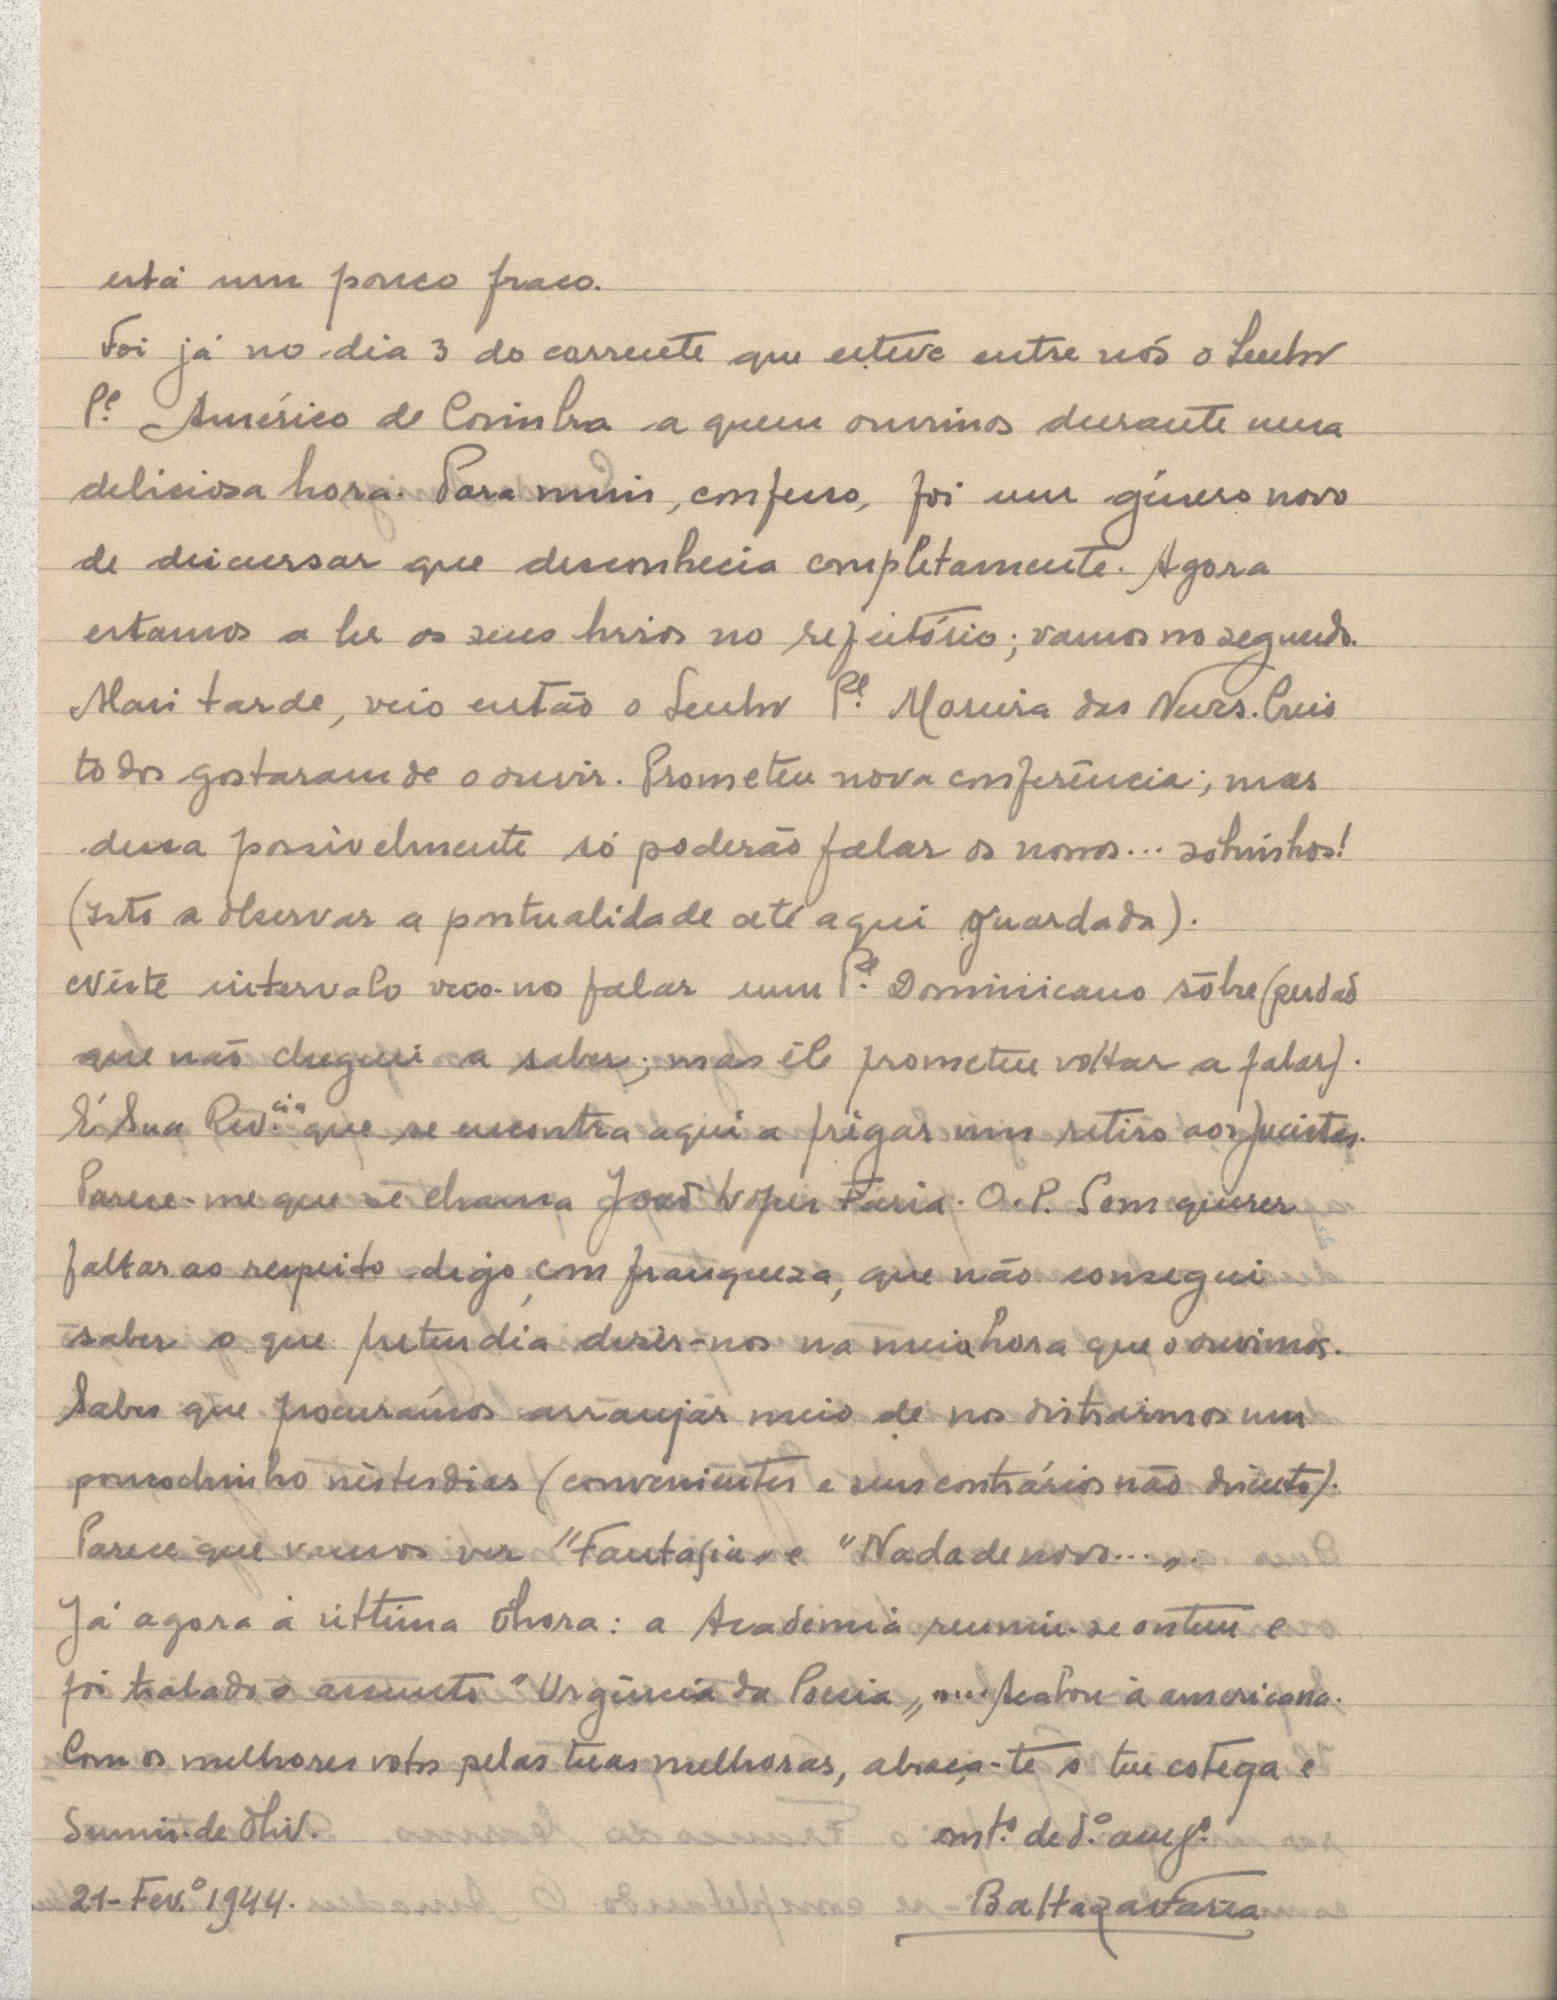 está um pouco fraco.
Foi já no dia 3 do corrente que esteve entre nós o Senhor
P.e Américo de Coimbra a quem ouvimos durante uma
deliciosa hora. Para mim, confesso, foi um género novo
de discursar que desconhecia completamente. Agora
estamos a ler os seus livros no refeitório; vamos no segundo.
Mais tarde, veio então o Senhor P.e Moreira das Neves. Creio
todos gostaram de o ouvir. Prometeu nova conferência; mas
dessa possivelmente só poderão falar os nossos... sobrinhos!
(Isto a observar a pontualidade até aqui guardada).
Nêste intervalo veio-nos falar um P.e Dominicano sôbre (perdão
que não cheguei a saber; mas êle prometeu voltar a falar).
É Sua Rev.cia que se encontra aqui a prègar um retiro aos Jucistas.
Parece-me que se chama João Lopes Faria. O.P. Sem querer
faltar ao respeito digo, com franqueza, que não consegui
saber o que pretendia dizer-nos na meia hora que o ouvimos.
Sabes que procurámos arranjar meio de nos distrairmos um
poucochinho nêstes dias (convenientes e seus contrários não discuto).
Parece que vamos ver "Fantasia" e "Nada de novo..."
Já agora à última óhora: a Academia reuniu-se ontem e
foi tratado o assunto "Urgência da Poesia" .... Acabou à americana.
Com os melhores votos pelas tuas melhoras, abraça-te o teu colega e
Semin. de Oliv. mt.o ded.o amg.o
21-Fev.o 1944. Baltazar Faria